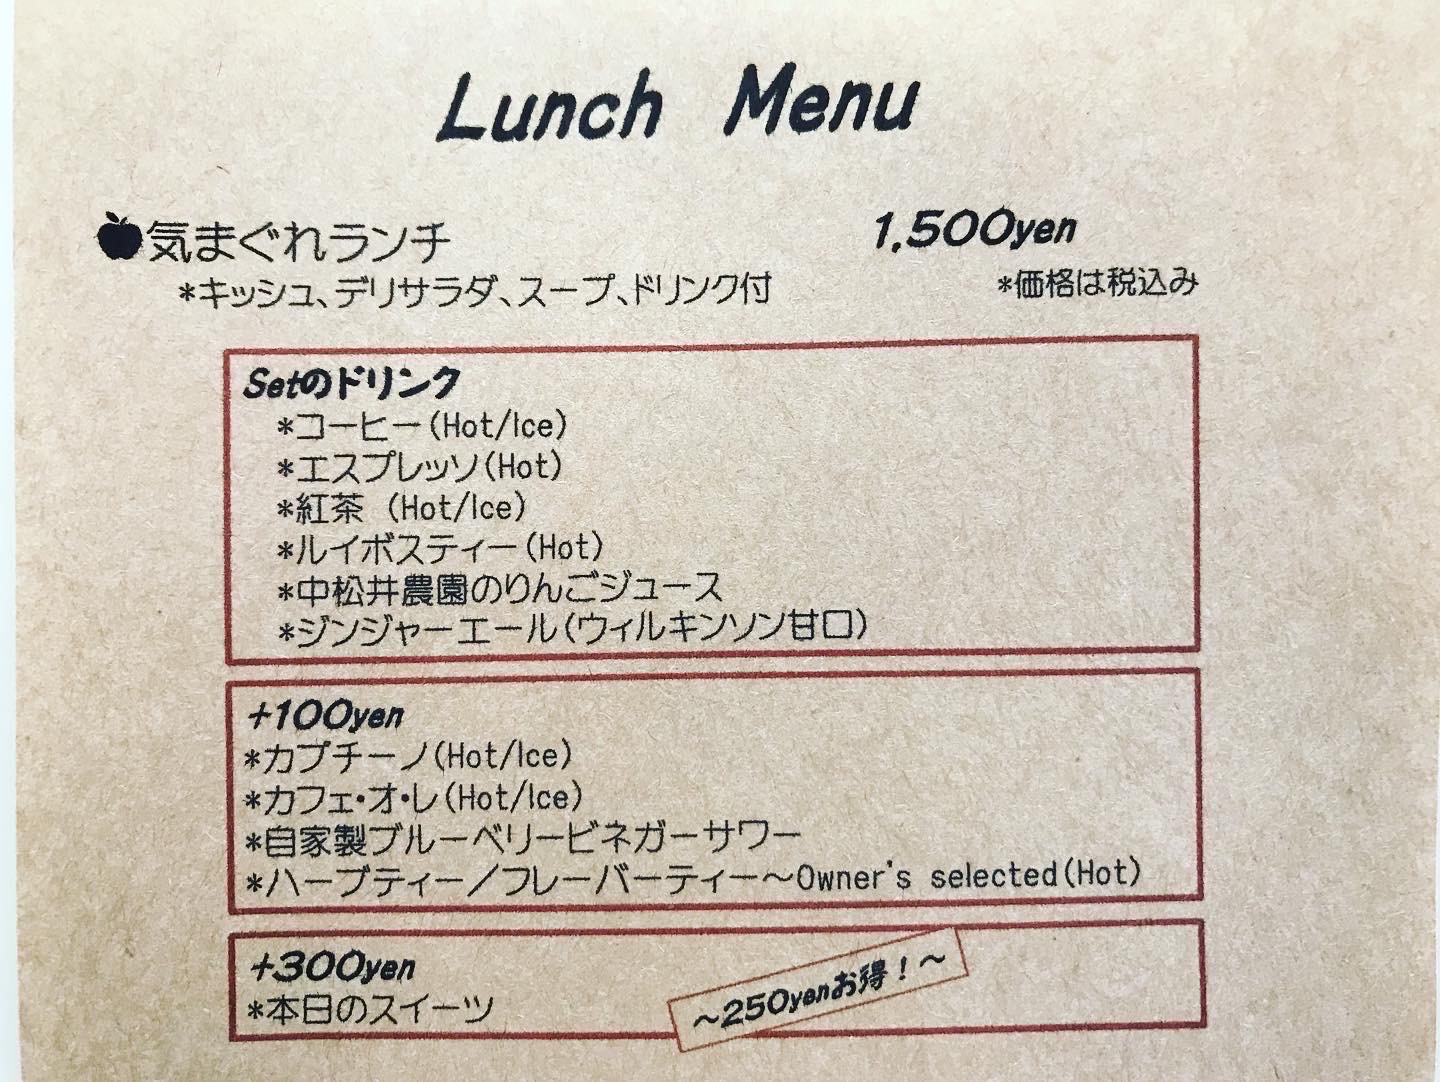 Lunch Menu
気まぐれランチ 1,500yen
*キッシュ、デリサラダ、スープ、ドリンク付 *価格は税込み
Setのドリンク
*コーヒー(Hot/Ice)
*エスプレッソ(Hot)
*紅茶 (Hot/Ice)
*ルイボスティー(Hot)
*中松井農園のりんごジュース
*ジンジャーエール(ウィルキンソン甘口)
+100yen
*カプチーノ(Hot/Ice)
*カフェ・オ・レ(Hot/Ice)
*自家製ブルーベリービネガーサワー
*ハーブティー/フレーバーティー～Owner's selected(Hot)
+300yen
～250yenお得！～
*本日のスイーツ